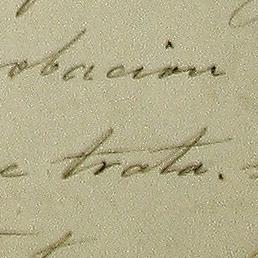 obacion
e trata.